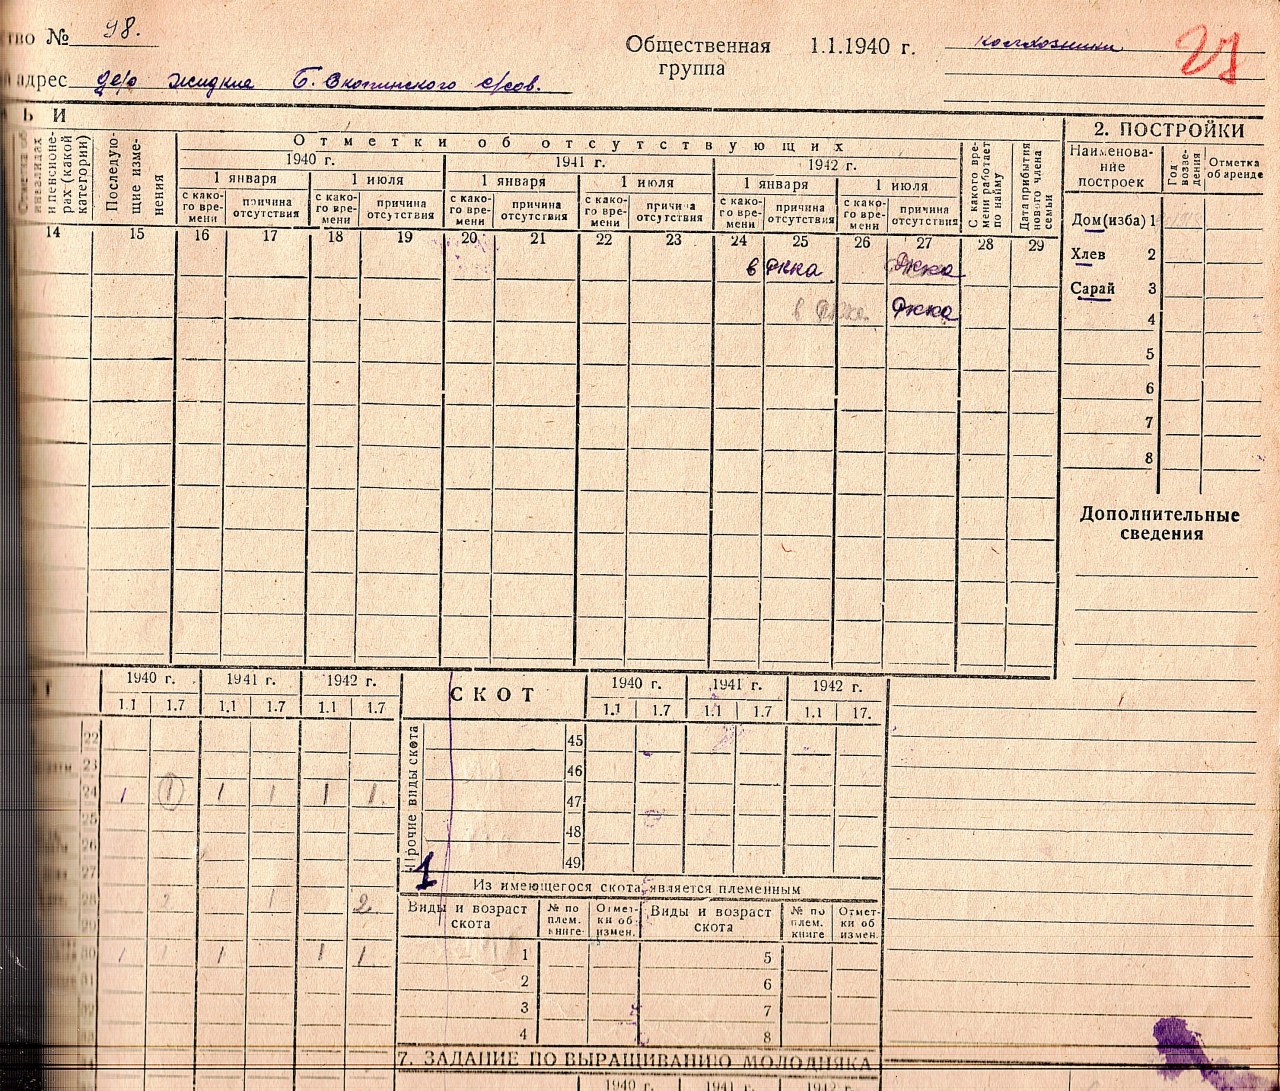 тво № 98.
Общественная 1.1.1940 г. колхозники 21
группа
адрес дер Жидкие Б. Скопинского с/сов.
Ь И
2. ПОСТРОЙКИ
и пенсионерах (какой категории)
Последующие изменения
Отметки об отсутствующих
1940 г. 1941 г. 1942 г.
1 января 1 июля 1 января 1 июля 1 января 1 июля
с какого времени причина отсутствия с какого времени причина отсутствия с какого времени причина отсутствия с какого времени причина отсутствия с какого времени причина отсутствия с какого времени причина отсутствия
С какого времени работает по найму
Дата прибытия нового члена семьи
Наименование построек
Год возведения
Отметка об аренде
14 15 16 17 18 19 20 21 22 23 24 25 26 27 28 29
Дом (изба) 1
в Ркка Ркка
Хлев 2
Сарай 3
в Ркка Ркка
4
5
6
7
8
Дополнительные
сведения
1940 г. 1941 г. 1942 г.
1.1 1.7 1.1 1.7 1.1 1.7
22
23
24 1 1 1 1 1 1
25
26
28 2 1 2
30 1 1 1 1 1
СКОТ 1940 г. 1941 г. 1942 г.
1.1 1.7 1.1 1.7 1.1 17.
Прочие виды скота
45
46
47
48
49
1
Из имеющегося скота является племенным
Виды и возраст скота № по плем. книге Отметки об измен. Виды и возраст скота № по плем. книге Отметки об измен.
1 5
2 6
3 7
4 8
7. ЗАДАНИЕ ПО ВЫРАЩИВАНИЮ МОЛОДНЯКА
1940 г. 1941 г. 1942 г.